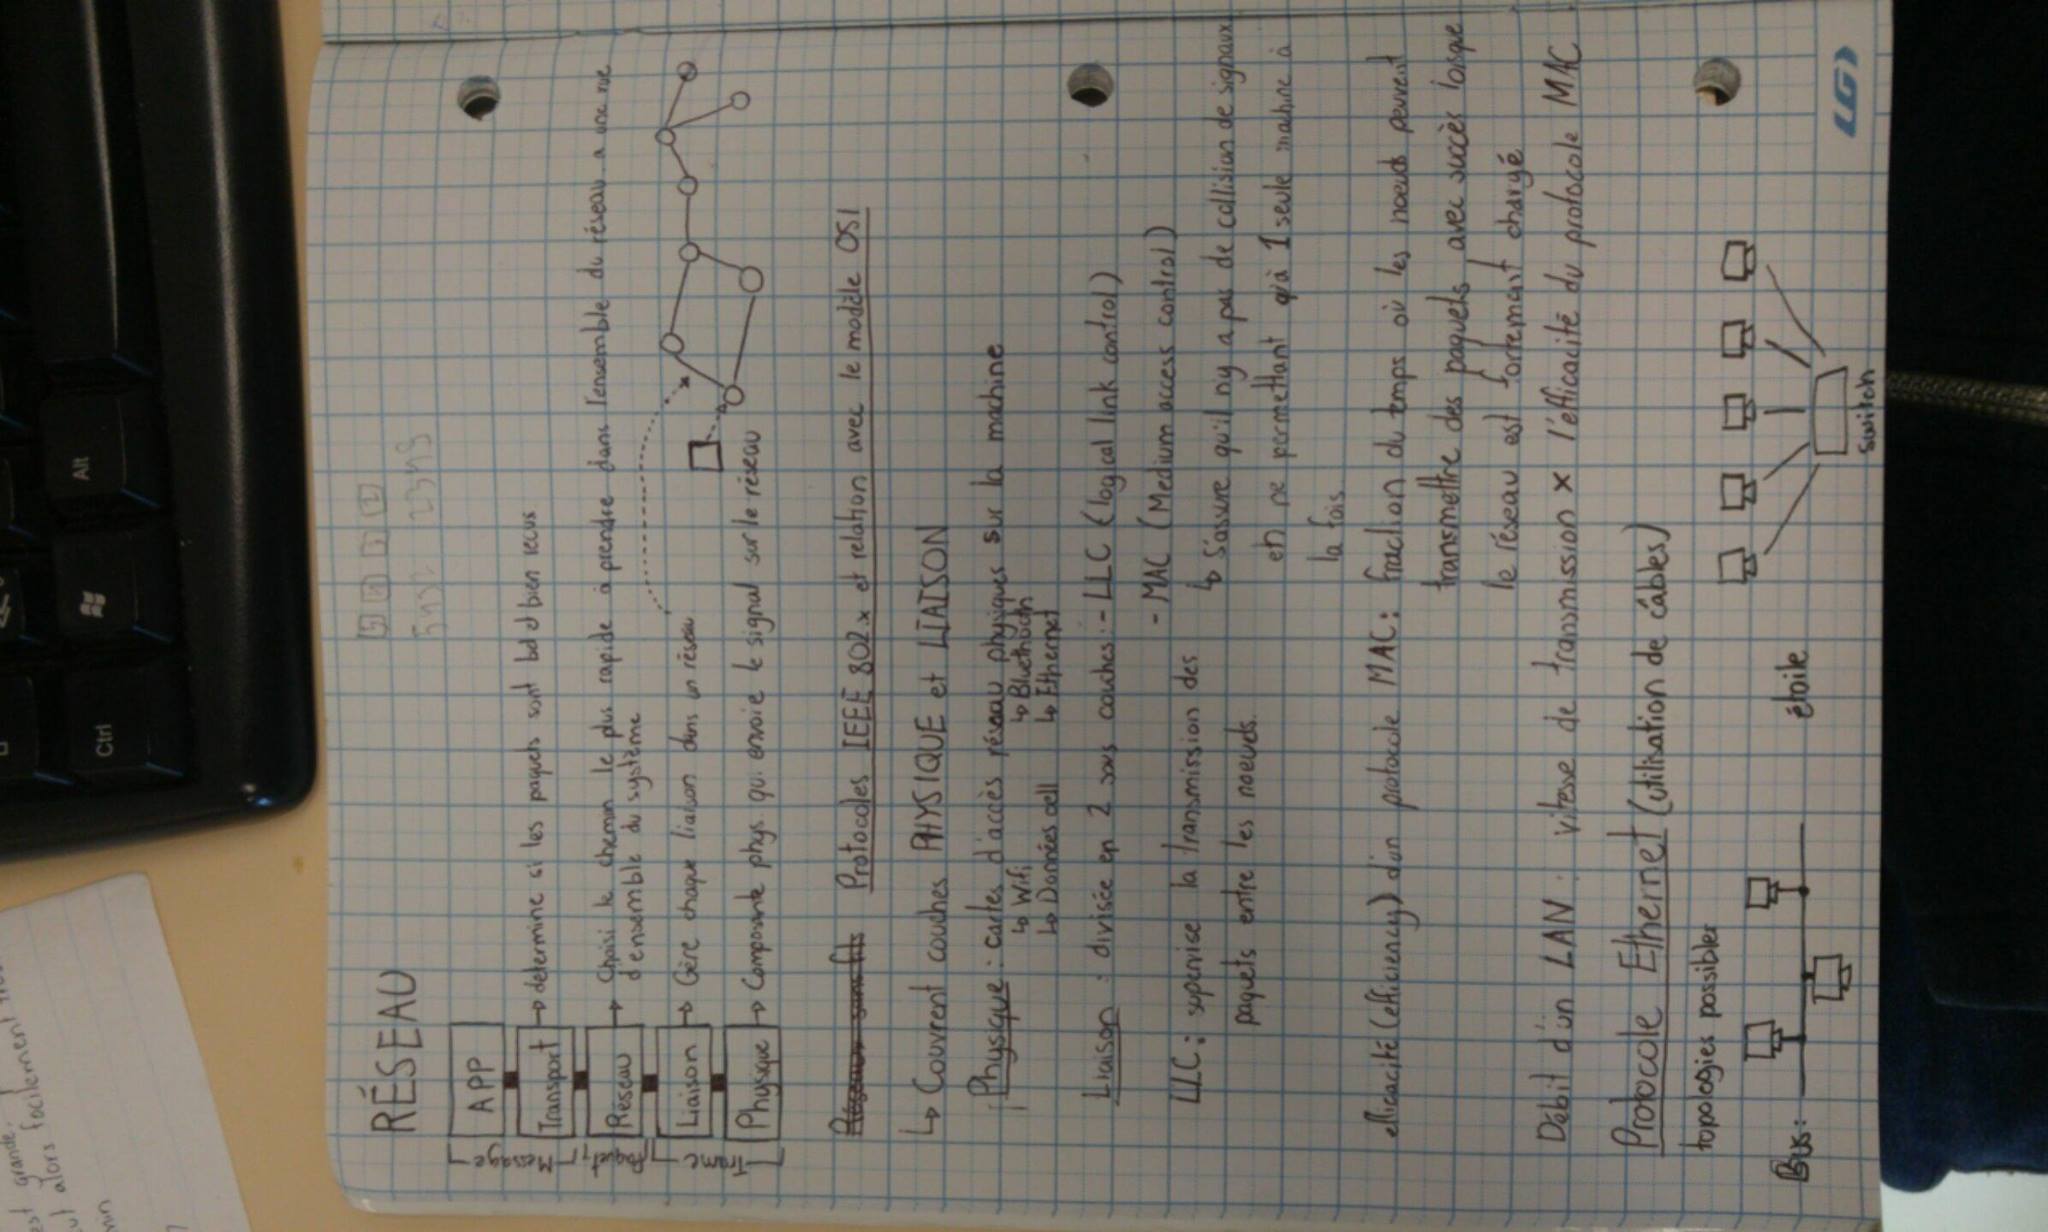 est grande.
alors facilement
min
Ctrl
Alt
RÉSEAU
5 4 3 2
5432 2345
Message
Paquet
Trame
APP
Transport → determine si les paquets sont bel et bien recus
Réseau → Choisi le chemin le plus rapide à prendre dans l'ensemble du réseau a une vue
d'ensemble du système
Liaison → Gère chaque liaison dans un réseau
Physique → Composante phys. qui envoie le signal sur le réseau
Réseaux sans fils Protocoles IEEE 802.x et relation avec le modèle OSI
↳ Couvrent couches PHYSIQUE et LIAISON
Physique : cartes d'accès réseau physiques sur la machine
↳ Wifi ↳ Bluethooth
↳ Données cell ↳ Ethernet
Liaison : divisée en 2 sous couches : - LLC (logical link control)
- MAC (Medium access control)
LLC : supervise la transmission des
paquets entre les noeuds.
↳ s'assure qu'il n'y a pas de collision de signaux
en ne permettant qu'à 1 seule machine à
la fois
efficacité (efficiency) d'un protocole MAC : fraction du temps où les noeuds peuvent
transmettre des paquets avec succès lorsque
le réseau est fortement chargé
Débit d'un LAN : vitesse de transmission x l'efficacité du protocole MAC
Protocole Ethernet (utilisation de câbles)
topologies possibles
Bus :
étoile
switch
LG